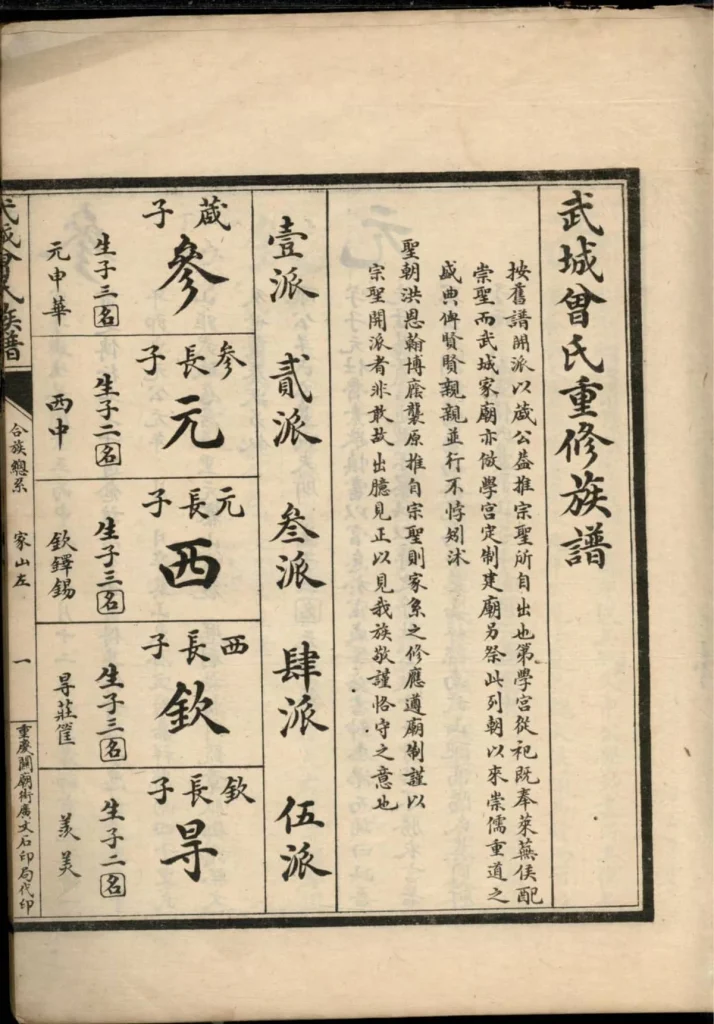 武城曾氏重修族譜
按舊譜開派以蒧公葢推宗聖所自出也第學宮從祀既奉萊蕪侯配
崇聖而武城家廟亦倣學宮定制建廟另祭此列朝以來崇儒重道之
盛典俾賢賢親親並行不悖矧沐
聖朝洪恩翰博廕襲原推自宗聖則家系之修應遵廟制謹以
宗聖開派者非敢故出臆見正以見我族敬謹恪守之意也
壹派
貳派
叁派
肆派
伍派
蒧子
參
生子三名
元申華
參長子
元
生子二名
西中
元長子
西
生子三名
欽鐸錫
西長子
欽
生子三名
㝵莊篚
欽長子
㝵
生子二名
羨美
武城曾氏族譜
合族總系
家山左
一
重慶關廟街廣文石印局代印